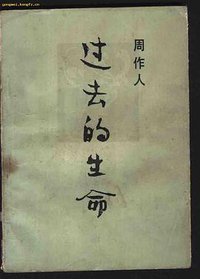 周作人
过去的生命